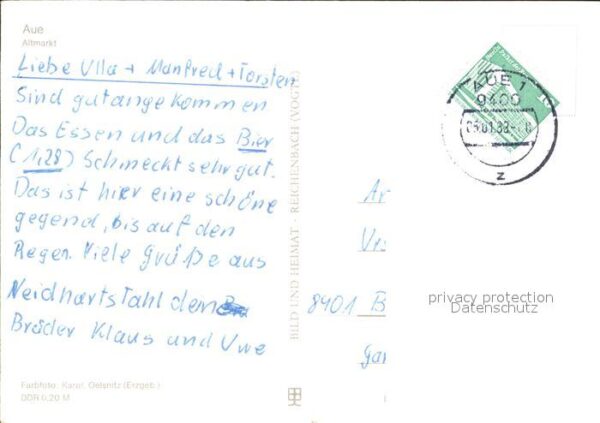 Aue
Altmarkt
Liebe Ulla + Manfred + Torsten
Sind gutangekommen
Das Essen und das Bier
(1,28) Schmeckt sehr gut.
Das ist hier eine schöne
gegend, bis auf den
Regen. Viele Grüße aus
Neidhartstahl den
Brüder Klaus und Uwe
Farbfoto: Karol, Oelsnitz (Erzgeb.)
DDR 0,20 M
BILD UND HEIMAT - REICHENBACH (VOGTL)
AUE 1
9400
z
8401 B
Gar
privacy protection
Datenschutz